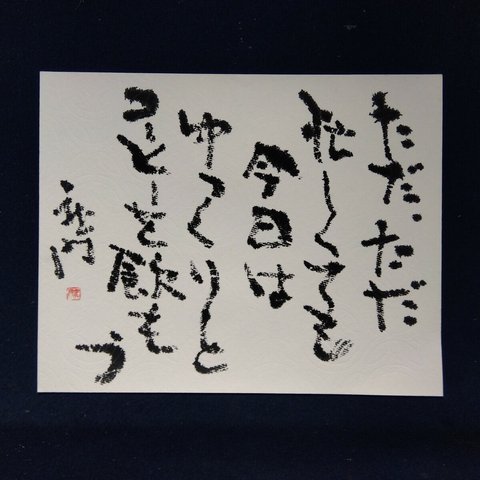 ただ、ただ
忙しくても
今日は
ゆっくりと
コーヒーを飲も
う